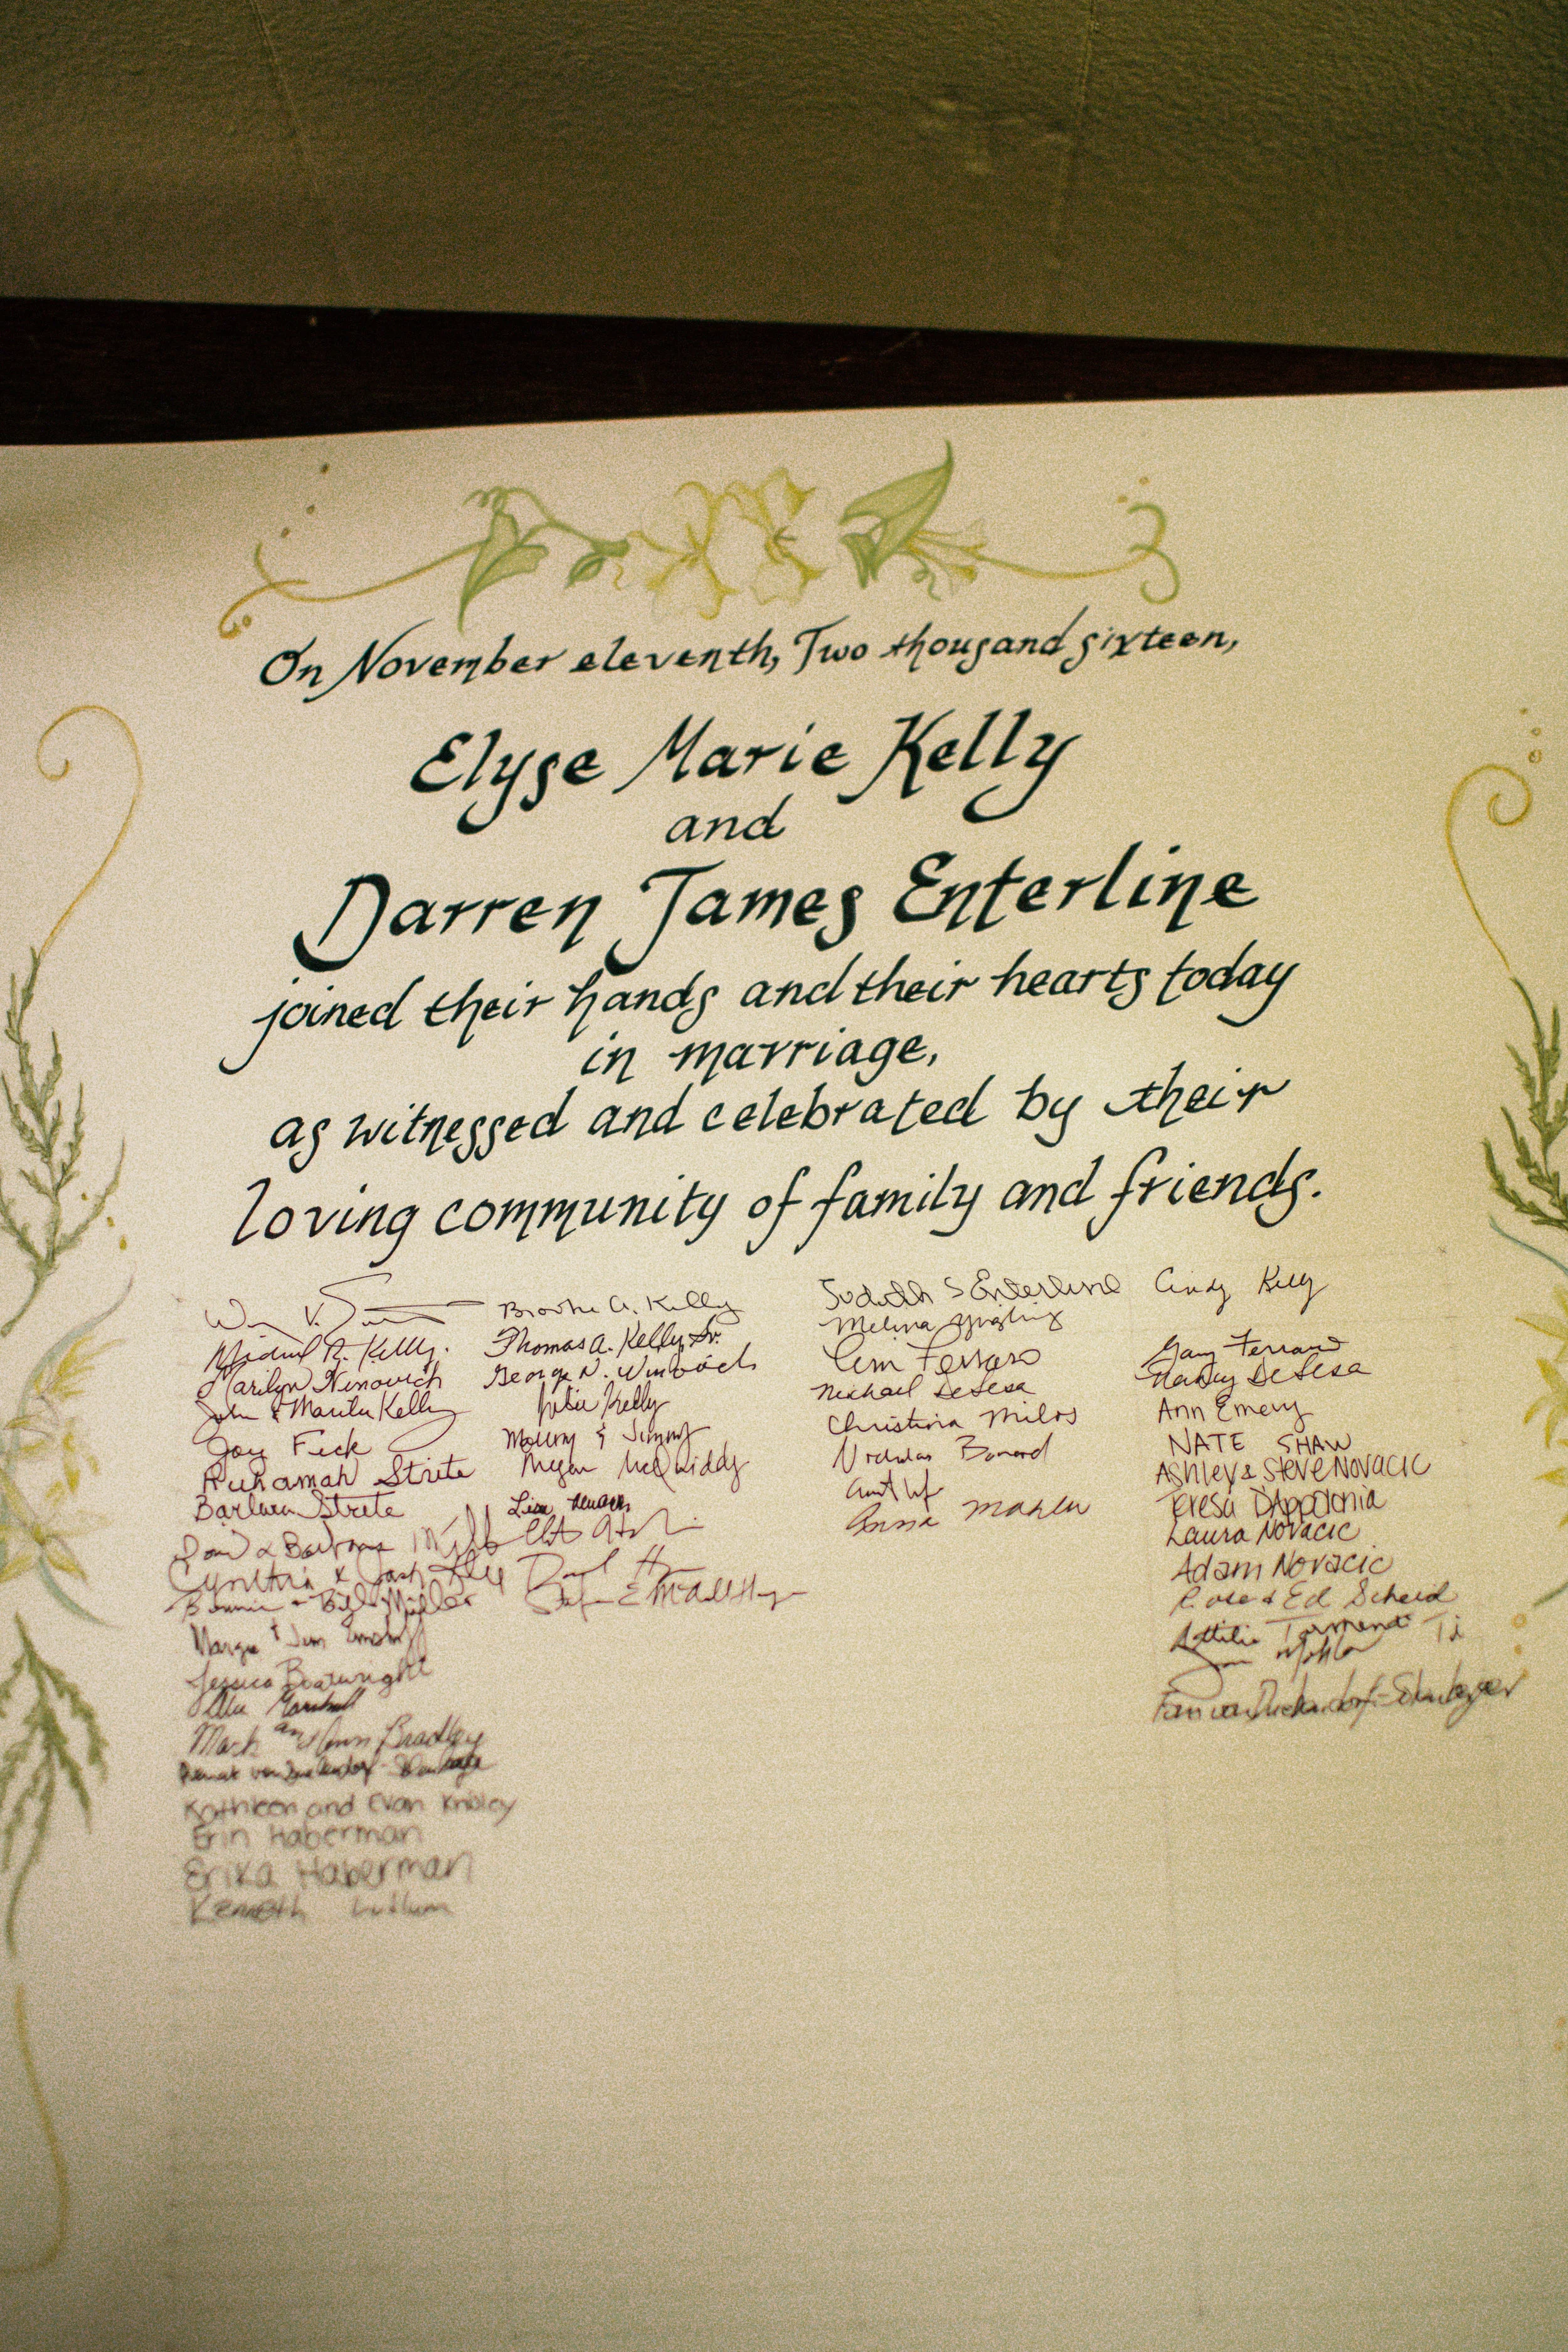 On November eleventh, Two thousand sixteen,
Elyse Marie Kelly
and
Darren James Enterline
joined their hands and their hearts today
in marriage,
as witnessed and celebrated by their
loving community of family and friends.
Michael R. Kelly
Marilyn Ninovich
John & Marita Kelly
Joy Feck
Ruhamah Strite
Barbara Strite
& Barbara
Cynthia & Josh
Bonnie & Bill Miller
Marge & Jim
Jessica Boatwright
Marshall
Mark and Ann Bradley
Kathleen and Evan Knisley
Erin Haberman
Erika Haberman
Kenneth Ludlum
Brooke A. Kelly
Thomas A. Kelly, Sr.
George N.
Julie Kelly
& Jimmy
Megan McQuiddy
Lisa
Judith S Enterline
Melina
Ferraro
Michael DeSesa
Christina Milos
Nicholas
Anna Mahler
Cindy Kelly
Gary Ferraro
Nancy DeSesa
Ann Emery
NATE SHAW
Ashley & Steve Novacic
Teresa D'Appolonia
Laura Novacic
Adam Novacic
Rose & Ed Scheid